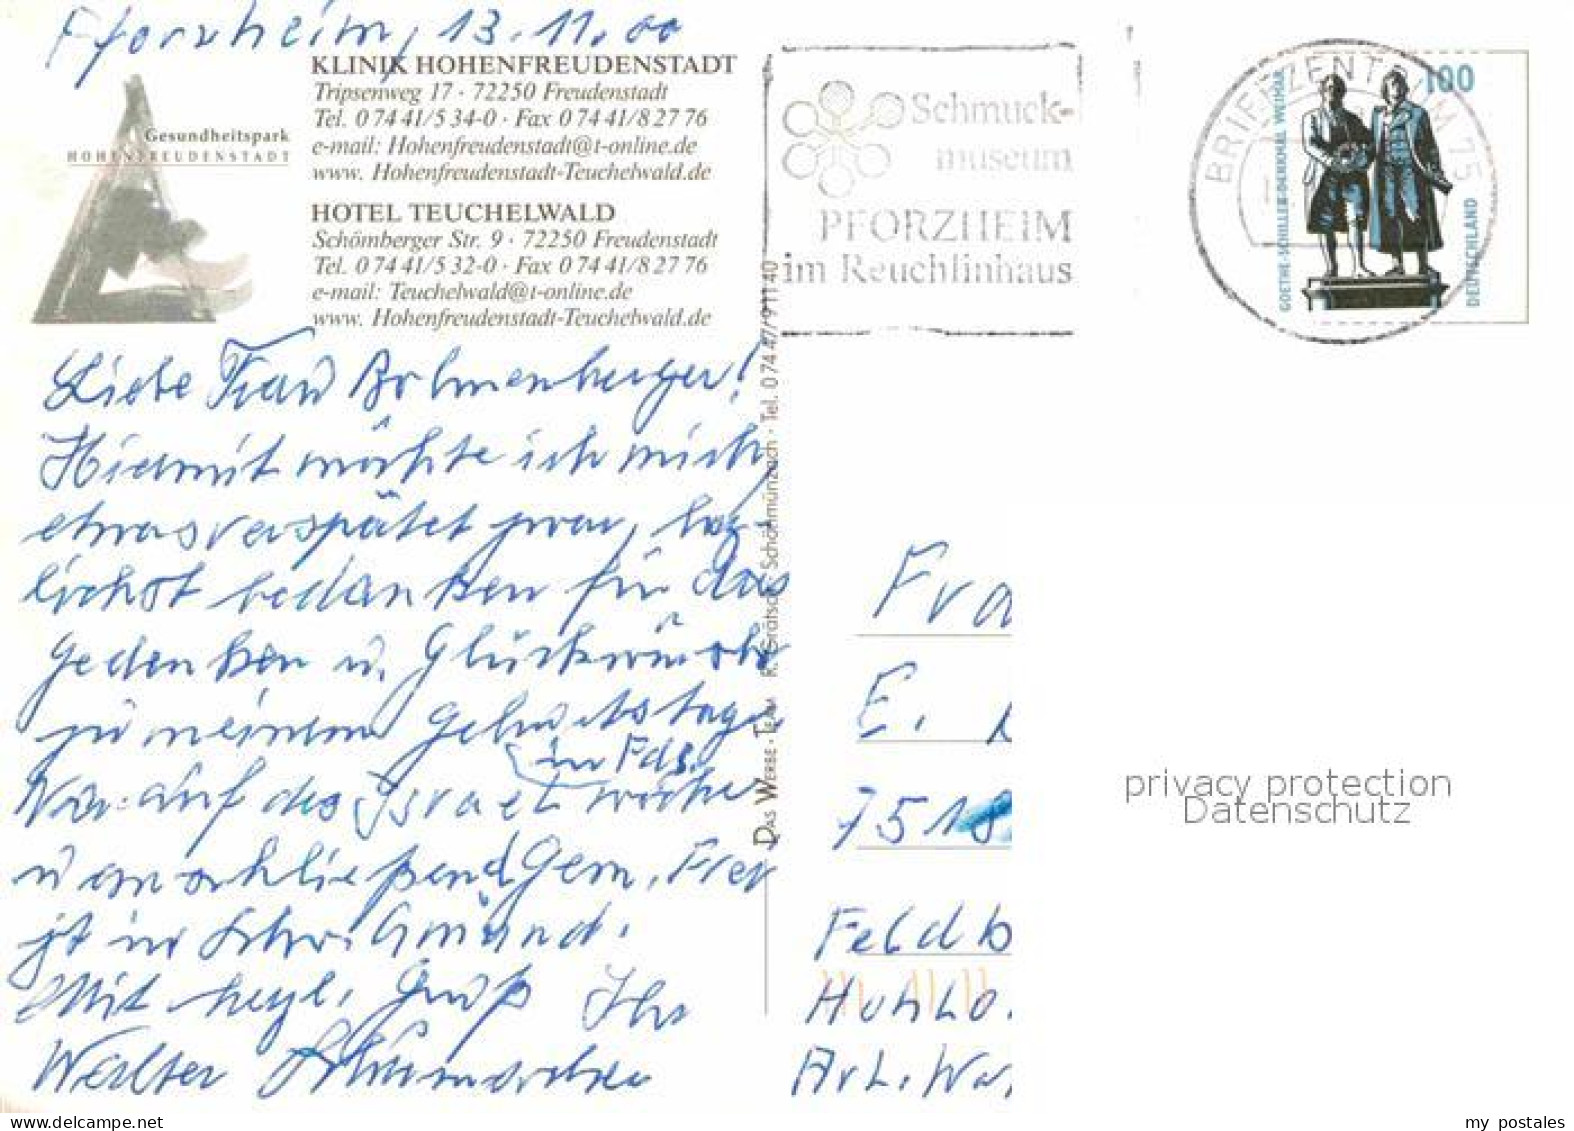 Pforzheim, 13.11.00
KLINIK HOHENFREUDENSTADT
Tripsenweg 17 · 72250 Freudenstadt
Tel. 0 74 41/5 34-0 · Fax 0 74 41/8 27 76
e-mail: Hohenfreudenstadt@t-online.de
www. Hohenfreudenstadt-Teuchelwald.de
Gesundheitspark
HOHENFREUDENSTADT
HOTEL TEUCHELWALD
Schömberger Str. 9 · 72250 Freudenstadt
Tel. 0 74 41/5 32-0 · Fax 0 74 41/8 27 76
e-mail: Teuchelwald@t-online.de
www. Hohenfreudenstadt-Teuchelwald.de
Liebe Frau
Hiermit möchte ich mich
etwas verspätet zwar, herz-
lichst bedanken für das
Gedenken u. Glückwünsche
zu meinem Geburtstage
in Fds.
War auf der Israel woche
u anschließend Gem. Frei
zt in Schw. Gmünd.
Mit herzl. Gruß Ihr
Walter
DAS WERBE · TEAM R. Grätsch · Schönmünzach · Tel. 0 74 47/9 11 40
Schmuck-
museum
PFORZHEIM
im Reuchlinhaus
BRIEFZENTRUM 75
100
GOETHE-SCHILLER-DENKMAL WEIMAR
DEUTSCHLAND
Fra
E.
7518
Feldb
privacy protection
Datenschutz
my postales